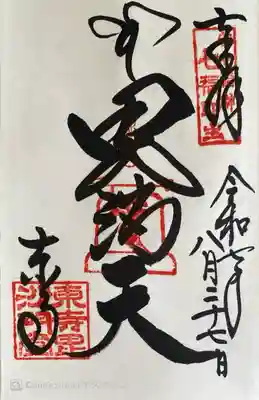 奉拝
令和七年
八月二十七日
毘沙門天
東寺
東寺毘
沙門堂